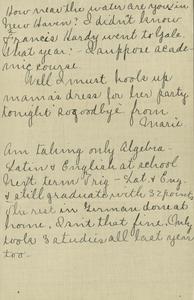 How near the water are you in
New Haven? I didn't know
Francis Hardy went to Yale
that year: - I suppose acade-
mic course.
Well I must hook up
mama's dress for her party
tonight so goodbye from
Marie
Am taking only Algebra -
Latin & English at school
Next term Trig - Lat. & Eng.
& still graduate with 32 points
the rest in German done at
home. Isn't that fine. Only
took 3 studies all last year
too.